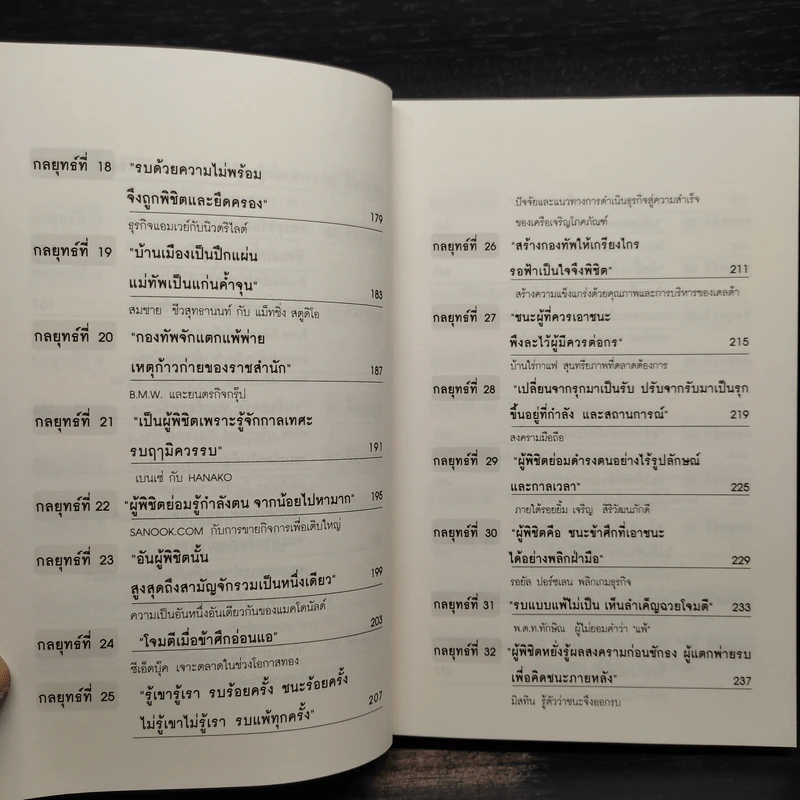 กลยุทธ์ที่ 18 "รบด้วยความไม่พร้อม
จึงถูกพิชิตและยึดครอง" 179
ธุรกิจแอมเวย์กับนิวตริไลต์
กลยุทธ์ที่ 19 "บ้านเมืองเป็นปึกแผ่น
แม่ทัพเป็นแก่นค้ำจุน" 183
สมชาย ชีวสุทธานนท์ กับ แม็ทชิ่ง สตูดิโอ
กลยุทธ์ที่ 20 "กองทัพจักแตกแพ้พ่าย
เหตุก้าวก่ายของราชสำนัก" 187
B.M.W. และยนตรกิจกรุ๊ป
กลยุทธ์ที่ 21 "เป็นผู้พิชิตเพราะรู้จักกาลเทศะ
รบฤๅมิควรรบ" 191
เบนเซ่ กับ HANAKO
กลยุทธ์ที่ 22 "ผู้พิชิตย่อมรู้กำลังตน จากน้อยไปหามาก" 195
SANOOK.COM กับการขายกิจการเพื่อเติบใหญ่
กลยุทธ์ที่ 23 "อันผู้พิชิตนั้น
สูงสุดถึงสามัญจักรวมเป็นหนึ่งเดียว" 199
ความเป็นอันหนึ่งอันเดียวกันของแมคโดนัลด์
กลยุทธ์ที่ 24 "โจมตีเมื่อข้าศึกอ่อนแอ" 203
ซีเอ็ดบุ๊ค เจาะตลาดในช่วงโอกาสทอง
กลยุทธ์ที่ 25 "รู้เขารู้เรา รบร้อยครั้ง ชนะร้อยครั้ง
ไม่รู้เขาไม่รู้เรา รบแพ้ทุกครั้ง" 207
ปัจจัยและแนวทางการดำเนินธุรกิจสู่ความสำเร็จ
ของเครือเจริญโภคภัณฑ์
กลยุทธ์ที่ 26 "สร้างกองทัพให้เกรียงไกร
รอฟ้าเป็นใจจึงพิชิต" 211
สร้างความแข็งแกร่งด้วยคุณภาพและการบริหารของเดลต้า
กลยุทธ์ที่ 27 "ชนะผู้ที่ควรเอาชนะ
พึงละไว้ผู้มีควรต่อกร" 215
บ้านไร่กาแฟ สุนทรียภาพที่ตลาดต้องการ
กลยุทธ์ที่ 28 "เปลี่ยนจากรุกมาเป็นรับ ปรับจากรับมาเป็นรุก
ขึ้นอยู่ที่กำลัง และสถานการณ์" 219
สงครามมือถือ
กลยุทธ์ที่ 29 "ผู้พิชิตย่อมดำรงตนอย่างไร้รูปลักษณ์
และกาลเวลา" 225
ภายใต้รอยยิ้ม เจริญ สิริวัฒนภักดี
กลยุทธ์ที่ 30 "ผู้พิชิตคือ ชนะข้าศึกที่เอาชนะ
ได้อย่างพลิกฝ่ามือ" 229
รอยัล ปอร์ซเลน พลิกเกมธุรกิจ
กลยุทธ์ที่ 31 "รบแบบแพ้ไม่เป็น เห็นลำเค็ญฉวยโจมตี" 233
พ.ต.ท.ทักษิณ ผู้ไม่ยอมคำว่า "แพ้"
กลยุทธ์ที่ 32 "ผู้พิชิตหยั่งรู้ผลสงครามก่อนชักธง ผู้แตกพ่ายรบ
เพื่อคิดชนะภายหลัง" 237
มิสทิน รู้ตัวว่าชนะจึงออกรบ